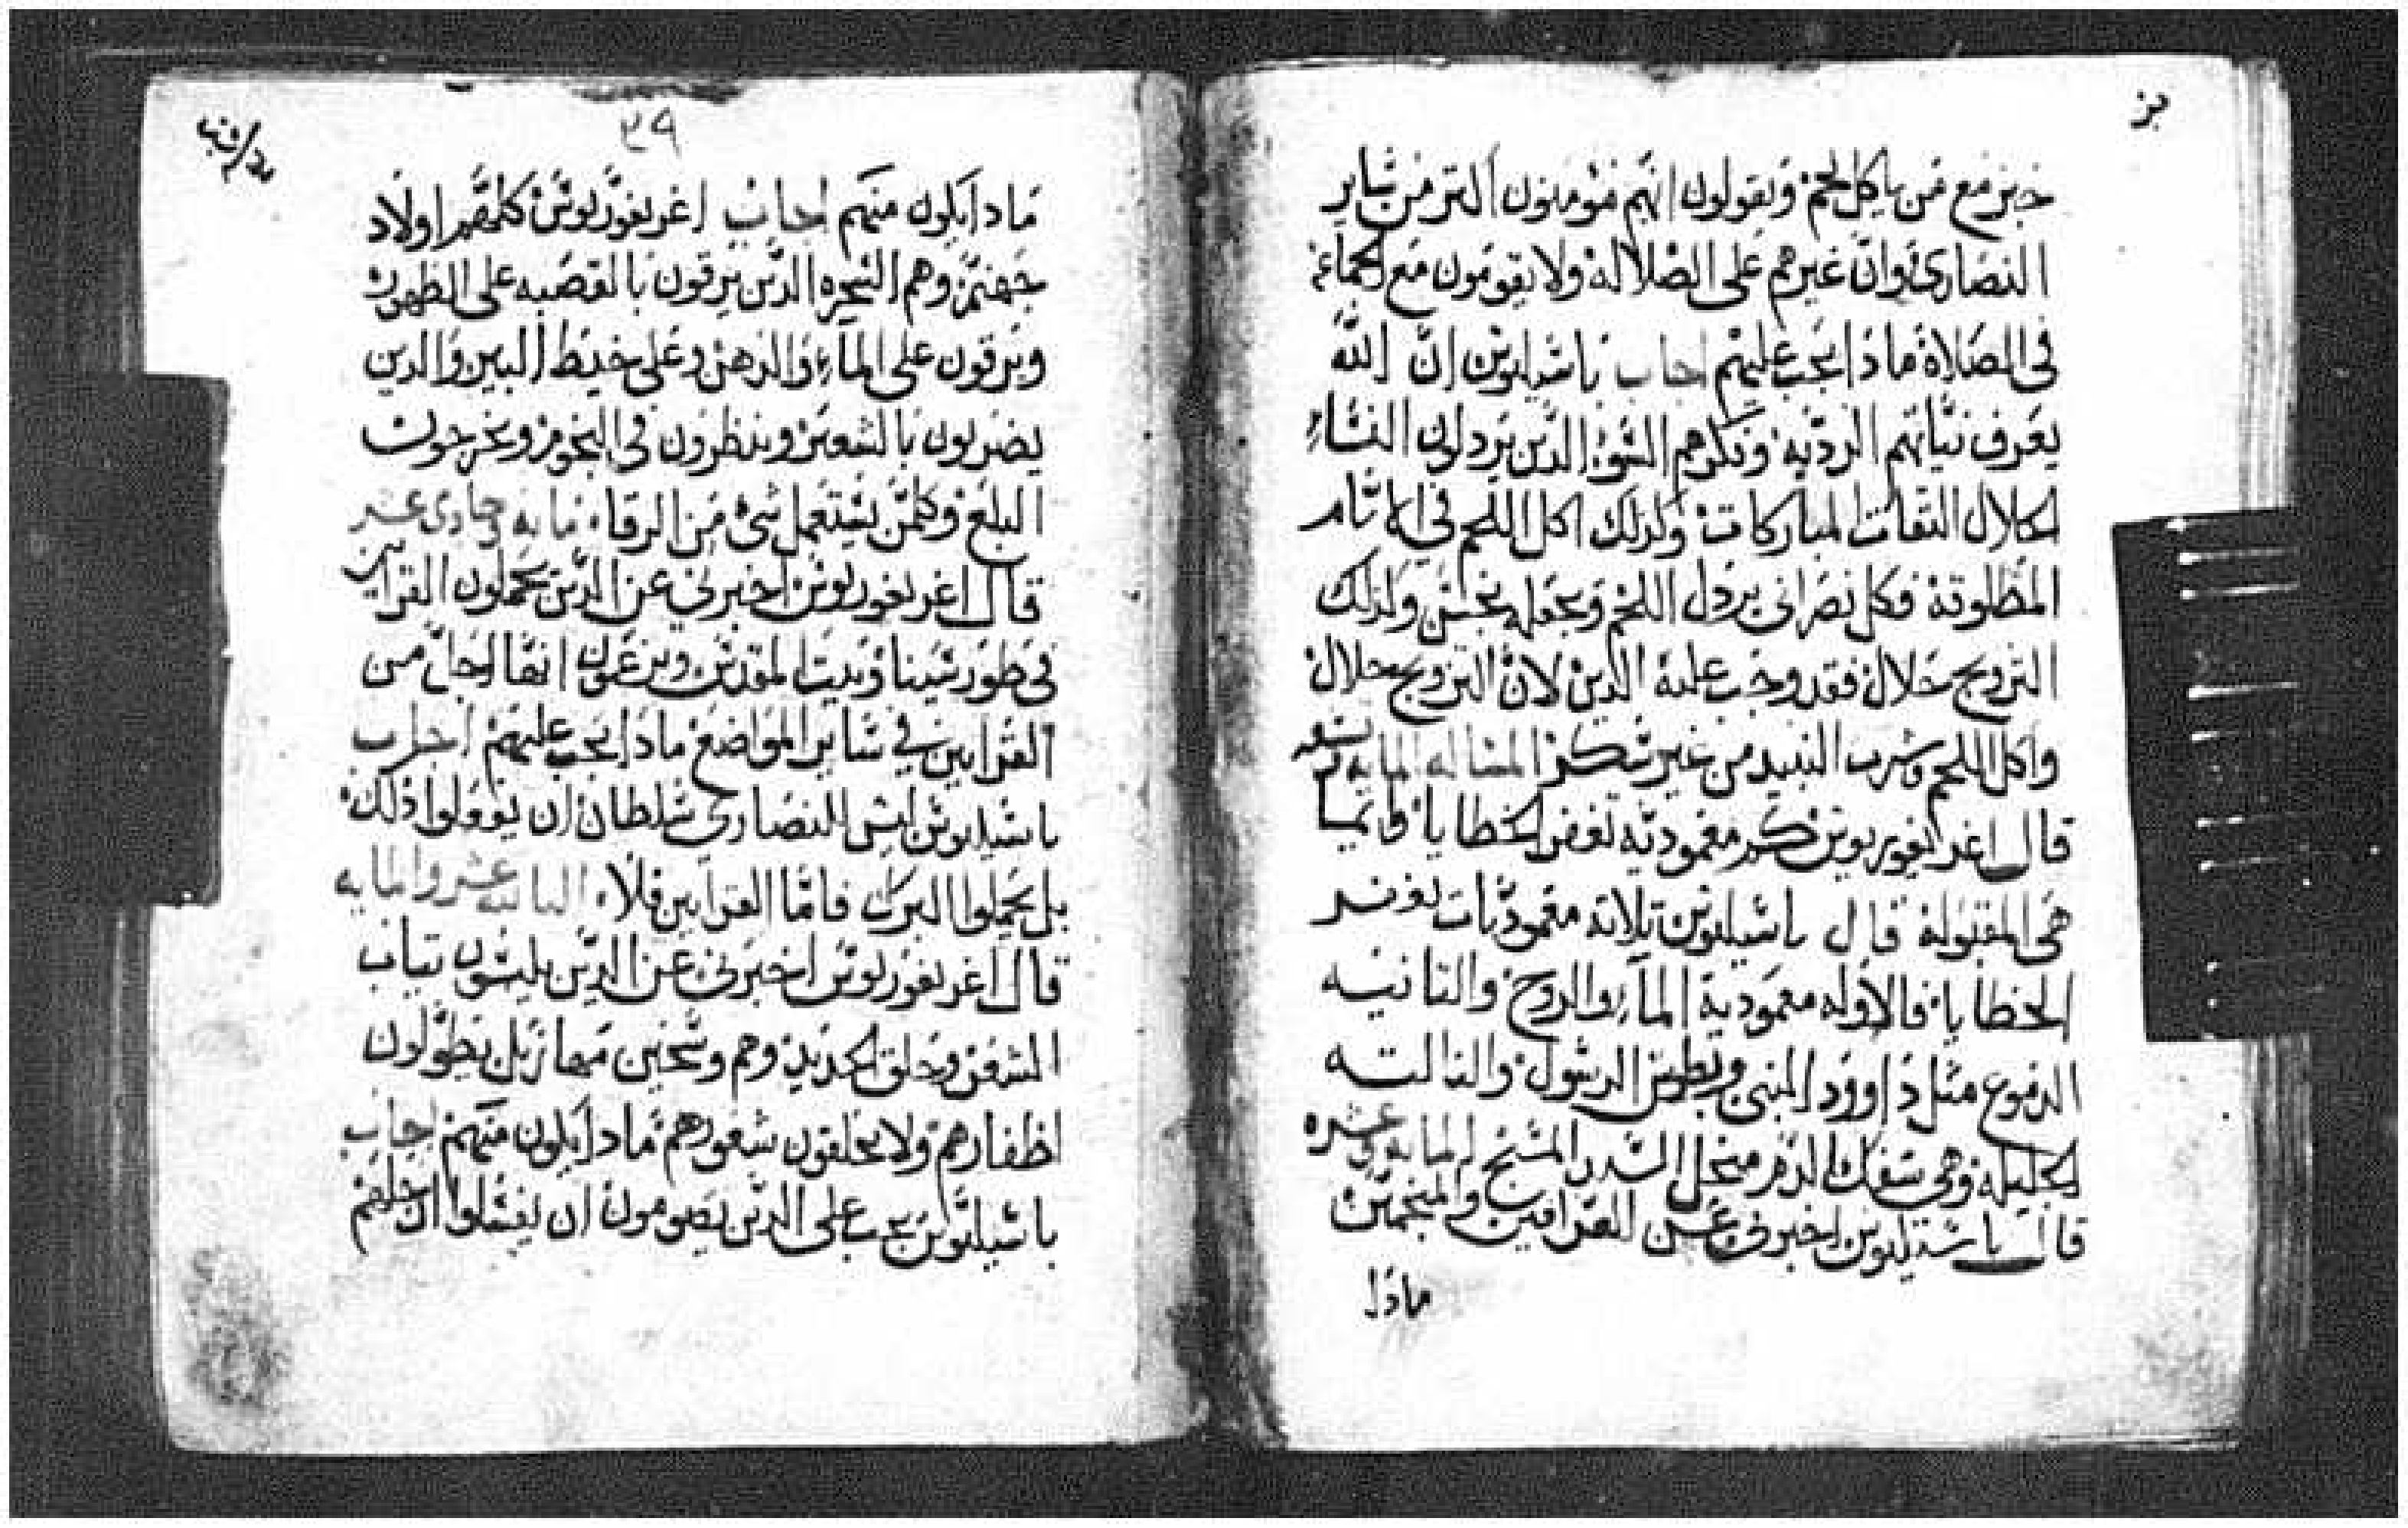 خبز مع من ياكل لحم ويقولون انهم مومنون اكتر من ساير
النصارى وان غيرهم على الضلاله ولا يقومون مع الجماعه
فى الصلاة ماذا يجب عليهم اجاب باسيليوس ان الله
يعرف نياتهم الرديه وفكرهم السو الدين يردلون النساء
الحلال التقات المباركات ولذلك اكل اللحم في الايام
المطلوقه فكل نصراني يردل اللحم ويجعله نجس ولذلك
التزويج حلال فقد وجب عليه الدين لان التزويج حلال
واكل اللحم وشرب النبيد من غير سكر المساله المايه تسعه
قال اغريغوريوس كم معموديه تغفر الخطايا وايما
هى المقبوله قال باسيليوس تلاتة معموديات تغفر
الخطايا فالاوله معمودية الماء والروح والتانيه
الدموع مثل داوود النبى وبطرس الرسول والتالته
الجليله وهى سفك الدم من اجل السيد المسيح المايه وعشره
قال باسيليوس اخبرنى عن العرافين والمنجمين
ماذا
٢٩
ماذا يكون منهم اجاب اغريغوريوس كلهم اولاد
جهنم وهم السحره الدين يرقون بالقصبه على الظهور
ويرقون على الماء والدهن وعلى خيط البير والدين
يضربون بالشعير وينظرون فى النجوم ويخرجون
البلغ وكلمن يستعمل شى من الرقا مايه وحادى عشر
قال اغريغوريوس اخبرني عن الدين يحملون القرابين
فى طور سينا وبيت المقدس ويزعمون انها اجل من
القرابين في ساير المواضع ماذا يجب عليهم اجاب
باسيليوس ليس للنصارى سلطان ان يفعلوا ذلك
بل يحملوا البركه فاما القرابين فلا التانيه عشر والمايه
قال اغريغوريوس اخبرنى عن الدين يلبسون تياب
الشعر وحلق الحديد وهم وسخين مهازيل يطولون
اظفارهم ولا يحلقون شعورهم ماذا يكون منهم اجاب
باسيليوس يجب على الدين يصومون ان يغسلوا ارجلهم